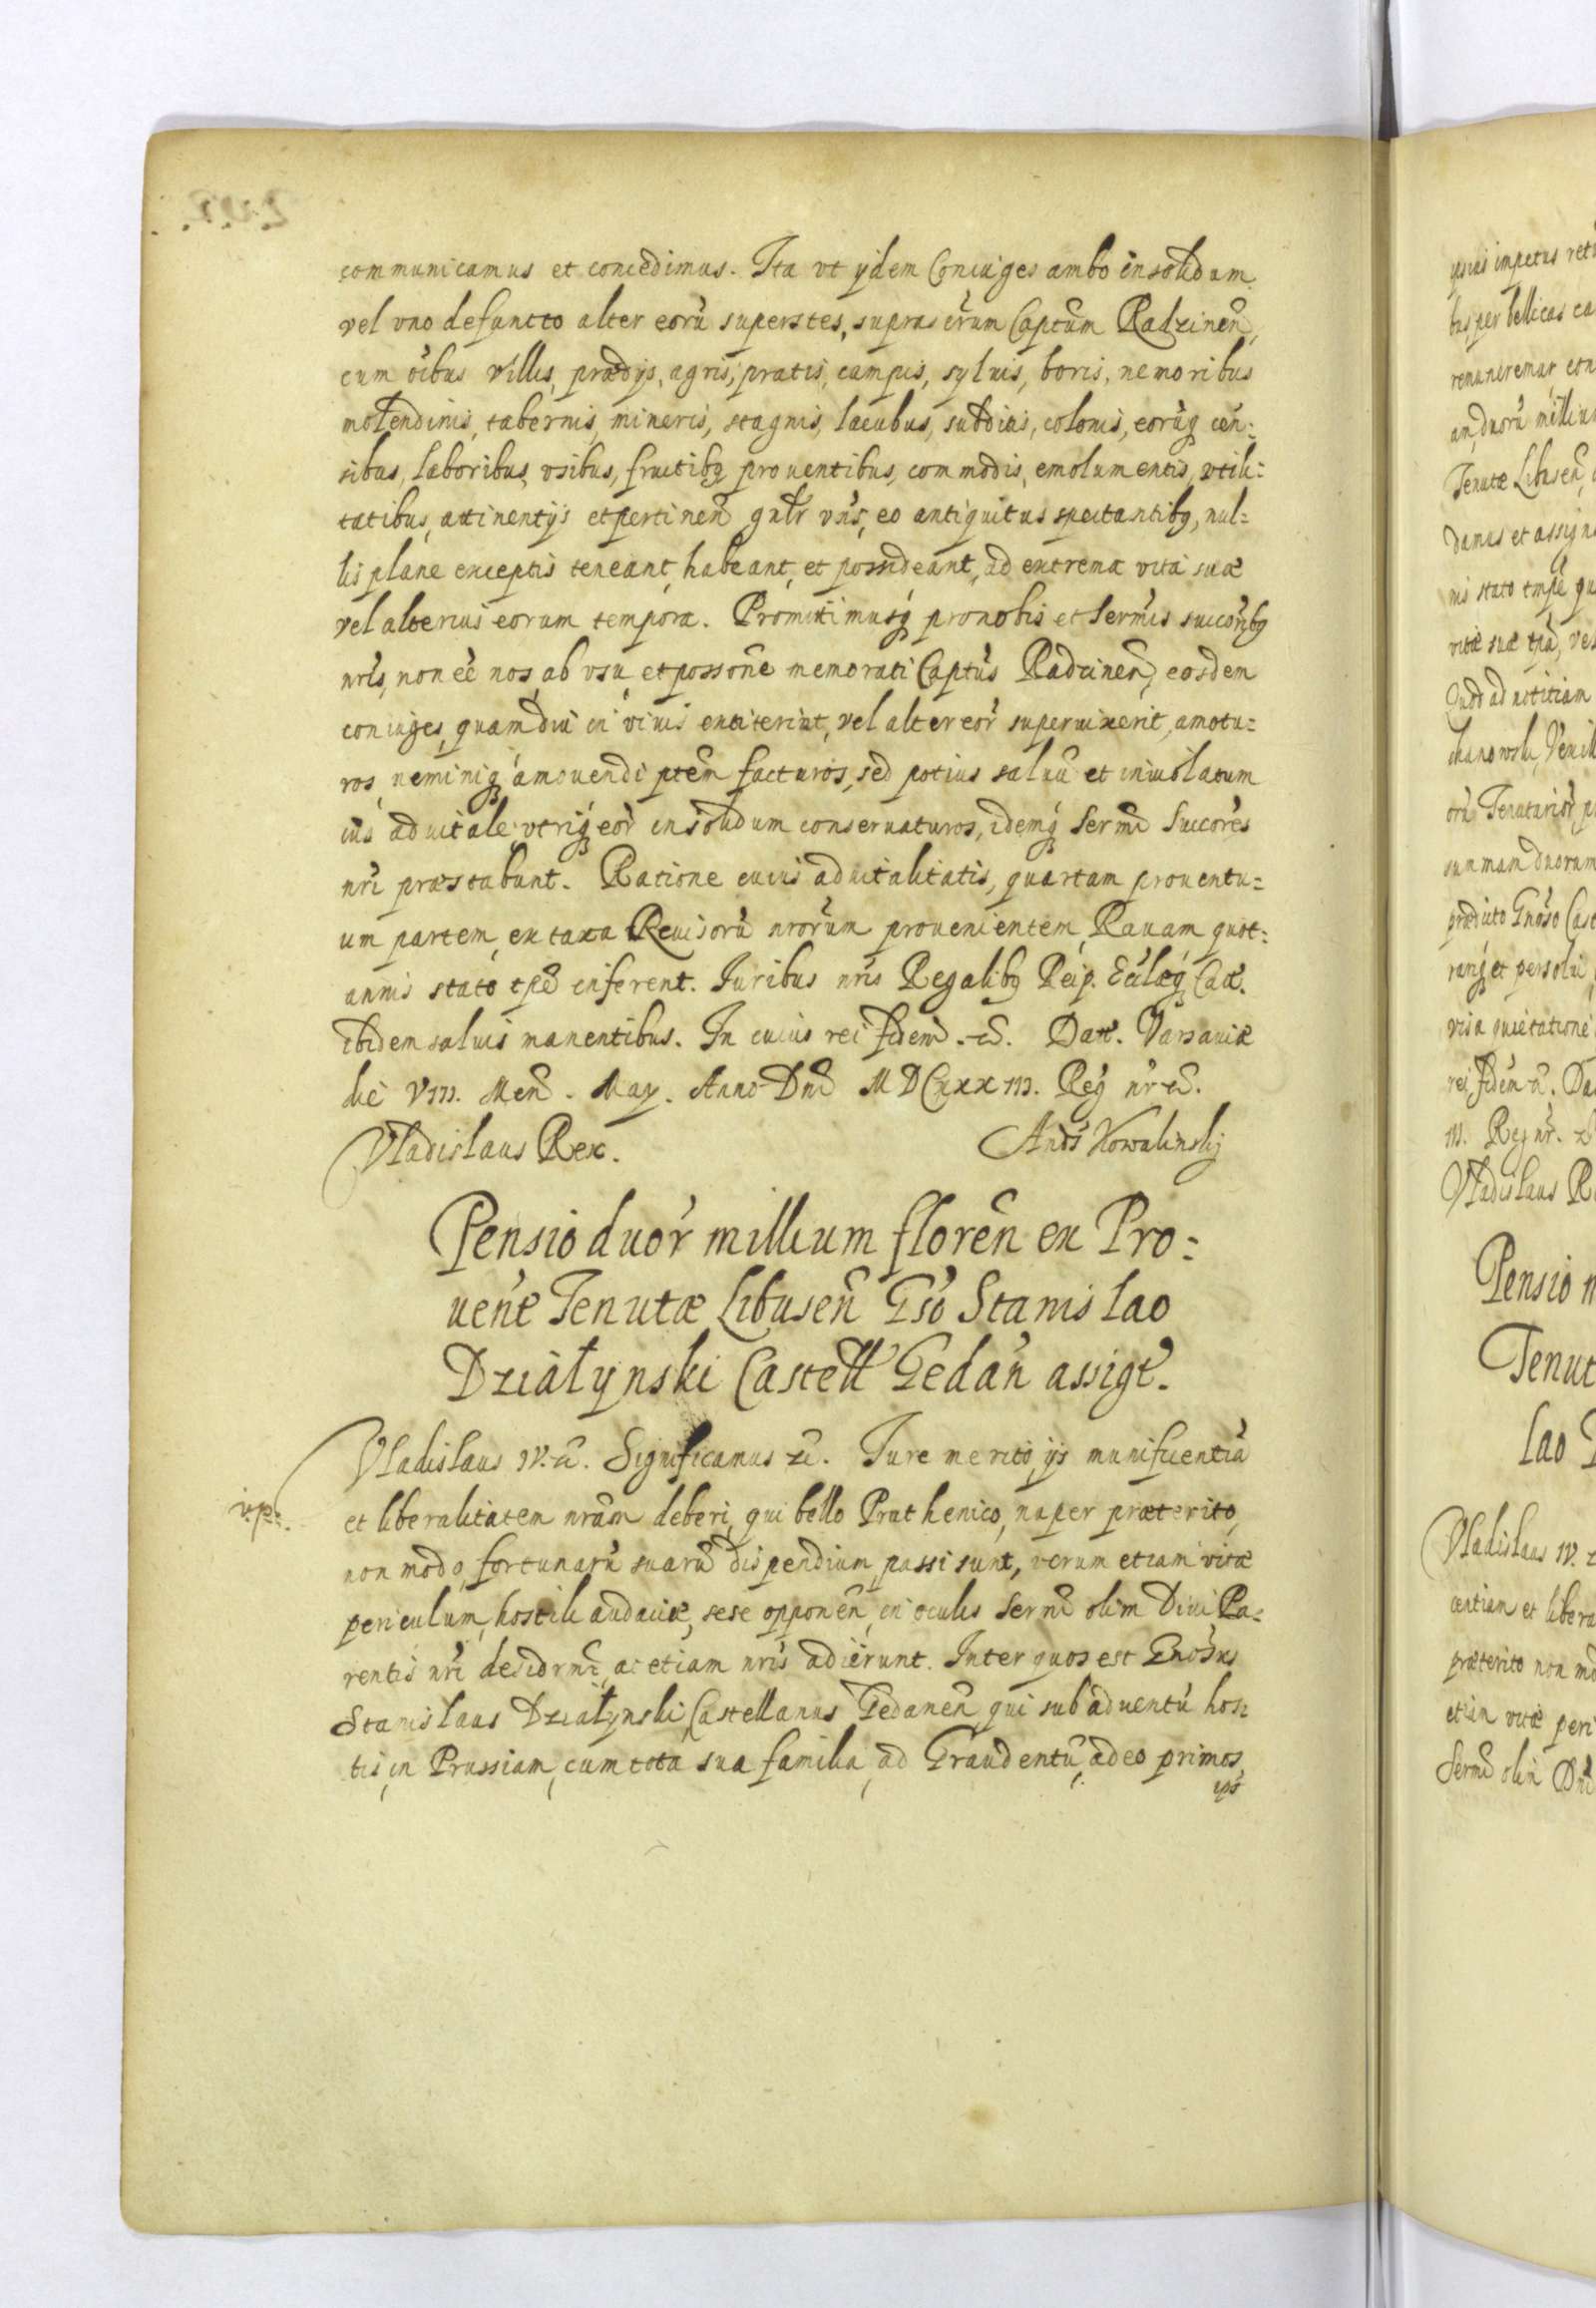 communicamus et concedimus. Ita vt ijdem Coniuges ambo in solidum
vel vno defuncto alter eorũ superstes, suprascr̃um Captũm Radzinen̄,
cum oĩbus villis, prædijs, agris, pratis, campis, syluis, boris, nemoribus
molendinis, tabernis, mineris, stagnis, lacubus, subditis, colonis, eorũq cen=
sibus, laboribus, vsibus, fructibq prouentibus, commodis, emolumentis, vtili=
tatibus, attinentijs et pertinen̄ gnl̃r vñs, eo antiquitus spectantibq, nul=
lis plane exceptis teneant, habeant, et possideant, ad extrema vitæ suæ
vel alterius eorum tempora. Promittimusq pro nobis et Serm̃is succõribq
nrĩs, non eẽ nos, ab vsu, et possoñe memorati Captũs Radzinen̄, eosdem
coniuges, quamdiu in viuis extiterint, vel alter eor̃ superuixerit, amotu=
ros, neminiq amouendi ptẽm facturos, sed potius saluũ et inuiolatum
ius aduitale, vtriq eor̃ in solidum conseruaturos, idemq Serm̃i Succõres
nrĩ præstabunt. Ratione cuius aduitalitatis, quartam prouentu=
um partem, ex taxa Reuisorũ nror̃um prouenientem, Rauam quot=
annis stato tpẽ inferent. Iuribus nrĩs Regalibq Reip. Ecclæq Cath.
ibidem saluis manentibus. In cuius rei fidem. etc̃. Datt. Varsauiæ
die VIII. Men̄. May. Anno Dnĩ MDCXXXIII. Reg nr̃ etc̃.
Vladislaus Rex. Ands̃ Kowalinskij
Pensio duor̃ millium floren̄ ex Pro=
uen̄e Tenutæ Libusen̄ Gsõ Stanislao
Działynski Castell Gedan̄ assigt̃.
Vladislaus IV. etc̃. Significamus etc̃. Iure merito ijs munificentiã
v.p.
et liberalitatem nrãm deberi, qui bello Pruthenico, nuper præterito,
non modo, fortunarũ suarũ dispendium passi sunt, verum etiam vitæ
periculum, hostili audaciæ, sese opponen̄, in oculis Serm̃i olim Diui Pa=
rentis nrĩ desidrm̃i, ac etiam nrĩs adierunt. Inter quos est Gnõsus
Stanislaus Działynski Castellanus Gedanen̄ qui sub aduentũ hos=
tis, in Prussiam, cum tota sua familia, ad Graudentũ, adeo primos
ips̃
ipsius impetus
bus, per bellicas
remuneremur,
duorũ millium
Tenutæ Libusen̄,
damus et
nis stato tmpẽ
vitæ suæ tpã,
Quod ad notitiam
orũ Tenutarior̃
summam duorum
prædicto Gnõso
et persolui
visa quietatione
rei fidem etc̃.
III. Reg nr̃. etc̃
Vladislaus
Pensio
Tenut
lao
Vladislaus IV.
centiam et libera
præterito non
etiam vitæ peri
Serm̃i olim